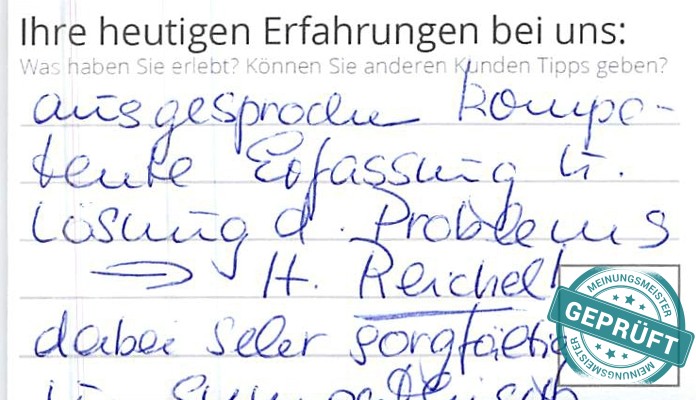 Ihre heutigen Erfahrungen bei uns:
Was haben Sie erlebt? Können Sie anderen Kunden Tipps geben?
ausgesprochen kompe-
tente Erfassung u.
Lösung d. Problems
→ H. Reichelt
dabei sehr sorgfältig
u. sympathisch
MEINUNGSMEISTER
GEPRÜFT
MEINUNGSMEISTER